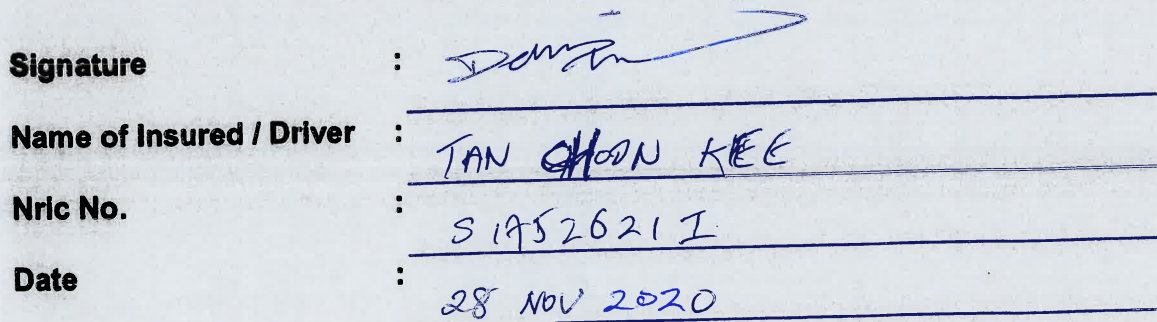 Signature :
Name of Insured / Driver : TAN CHOON KEE
Nric No. : S1752621I
Date : 28 NOV 2020